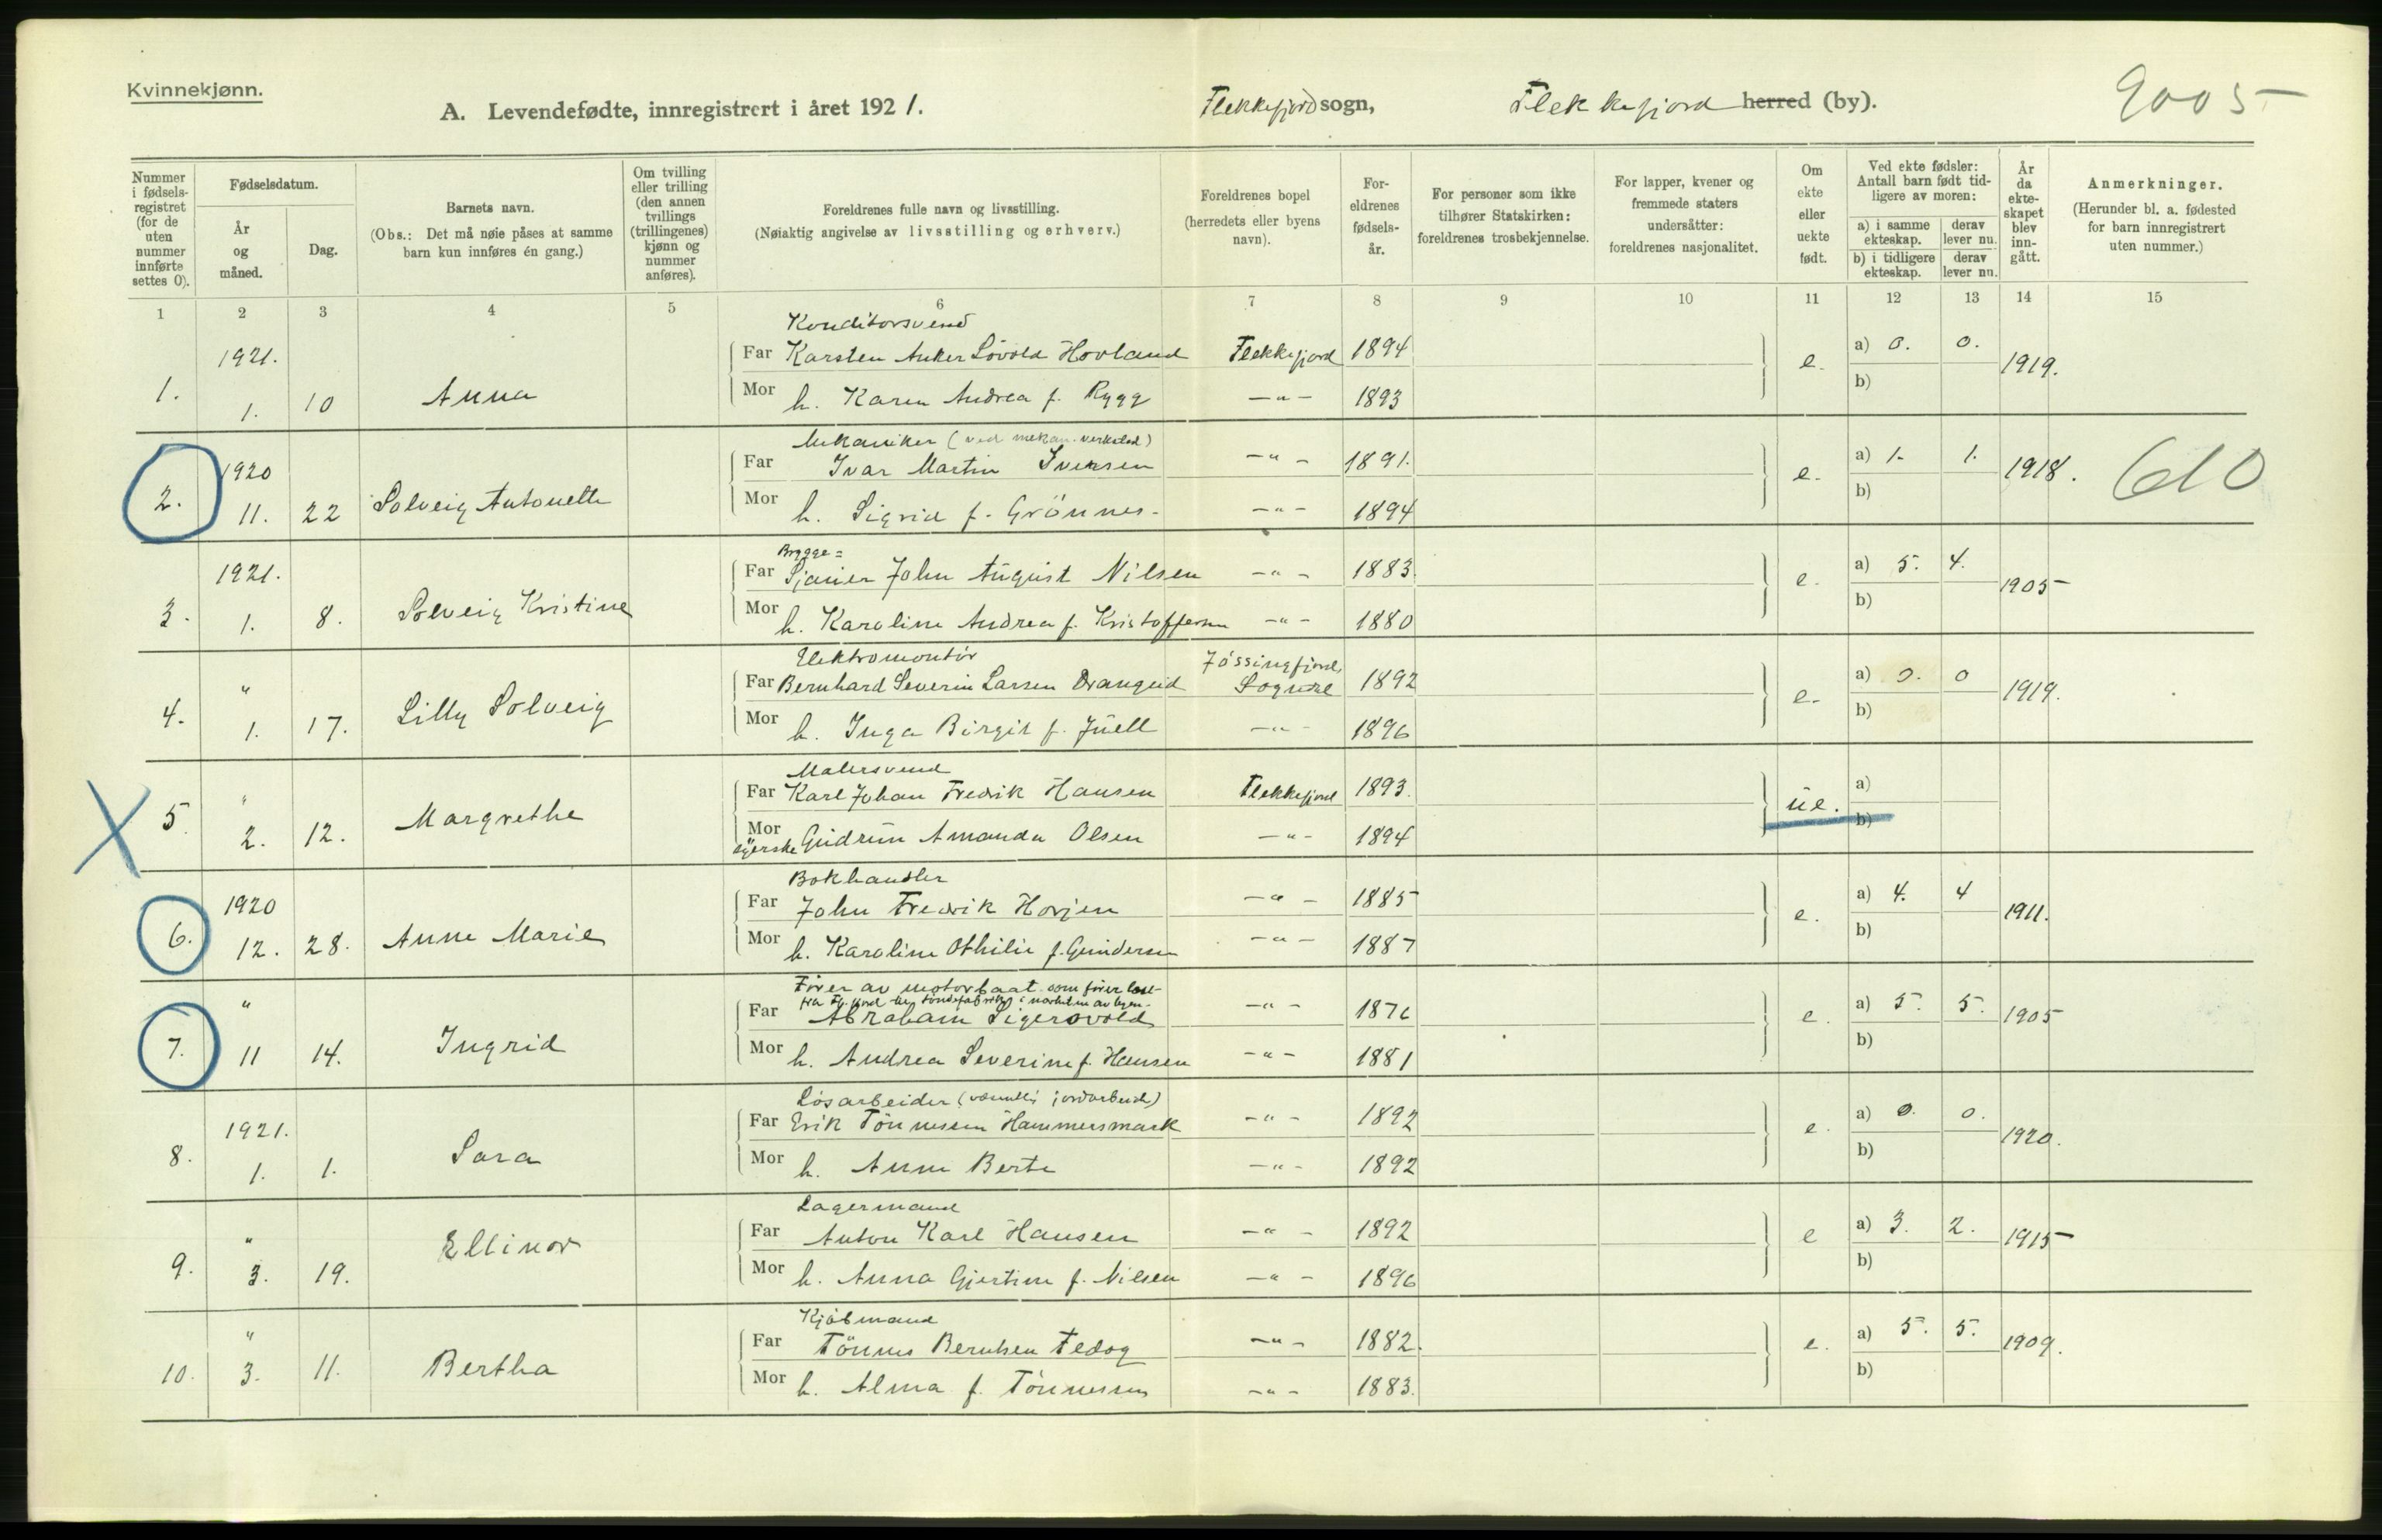 Kvinnekjønn.
A. Levendefødte, innregistrert i året 1921. Flekkefjord sogn, Flekkefjord herred (by). 9005
Nummer i fødselsregistret (for de uten nummer innførte settes 0).
Fødselsdatum.
År og måned.
Dag.
Barnets navn.
(Obs.: Det må nøie påses at samme barn kun innføres én gang.)
Om tvilling eller trilling (den annen tvillings (trillingenes) kjønn og nummer anføres).
Foreldrenes fulle navn og livsstilling.
(Nøiaktig angivelse av livsstilling og erhverv.)
Foreldrenes bopel (herredets eller byens navn).
Foreldrenes fødselsår.
For personer som ikke tilhører Statskirken: foreldrenes trosbekjennelse.
For lapper, kvener og fremmede staters undersåtter: foreldrenes nasjonalitet.
Om ekte eller uekte født.
Ved ekte fødsler: Antall barn født tidligere av moren:
a) i samme ekteskap. derav lever nu.
b) i tidligere ekteskap. derav lever nu.
År da ekteskapet blev inngått.
Anmerkninger.
(Herunder bl. a. fødested for barn innregistrert uten nummer.)
1 2 3 4 5 6 7 8 9 10 11 12 13 14 15
Konditorsvend
1921. Far Karsten Anker Lövold Hovland Flekkefjord 1894 e. a) 0. 0. 1919.
1. 1. 10 Anna Mor h. Karen Andrea f. Rygg —"— 1893 b)
Mekaniker (ved mekan. verksted)
1920 Far Ivar Martin Iversen —"— 1891. e. a) 1. 1. 1918. 610
2. 11. 22 Solveig Antonette Mor h. Sigrid f. Grönnes. —"— 1894 b)
Brygge=
1921. Far Sjauer John August Nilsen —"— 1883. e. a) 5. 4. 1905
3. 1. 8. Solveig Kristine Mor h. Karoline Andrea f. Kristoffersen —"— 1880 b)
Elektromontör Jössingfjord,
" Far Bernhard Severin Larsen Drangeid Sogndal 1892 e. a) 0. 0 1919.
4. 1. 17. Lilly Solveig Mor h. Inga Birgit f. Juell —"— 1896 b)
Malersvend
" Far Karl Johan Fredrik Hansen Flekkefjord 1893. ue. a)
5. 2. 12. Margrethe Mor syerske Gudrun Amanda Olsen —"— 1894 b)
Bokhandler
1920 Far John Fredrik Horjen —"— 1885 e. a) 4. 4 1911.
6. 12. 28. Anne Marie Mor h. Karoline Othilie f. Gundersen —"— 1887 b)
Förer av motorbaat som förer last
fra Fl.fjord til töndefabrikk i nærheten av byen.
" Far Abraham Sigersvold —"— 1876 e. a) 5. 5. 1905
7. 11 14. Ingrid Mor h. Andrea Severine f. Hansen —"— 1881 b)
Lösarbeider (væsentlig jordarbeide)
1921. Far Erik Tönnesen Hammersmark —"— 1892 e. a) 0. 0. 1920.
8. 1. 1. Sara Mor h. Anne Berte —"— 1892 b)
Lagermand
" Far Anton Karl Hansen —"— 1892 e a) 3. 2. 1915
9. 3. 19. Ellinor Mor h. Anna Gjertine f. Nilsen —"— 1896 b)
Kjöbmand
" Far Tönnes Berntsen Fedog —"— 1882. e. a) 5. 5. 1909.
10. 3. 11. Bertha Mor h. Alma f. Tönnessen —"— 1883. b)